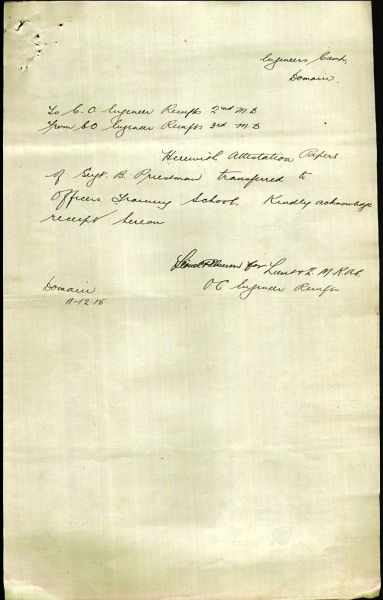 Engineers Camp,
Domain.
To C.O Engineer Reinfts 2nd M.D
From CO Engineer Reinfts 3rd M.D
Herewith Attestation Papers
of Sergt. B. Priestman transferred to
Officers Training School. Kindly acknowledge
receipt hereon
for Lieut &
OC Engineer Reinfts
Domain
11-12-15